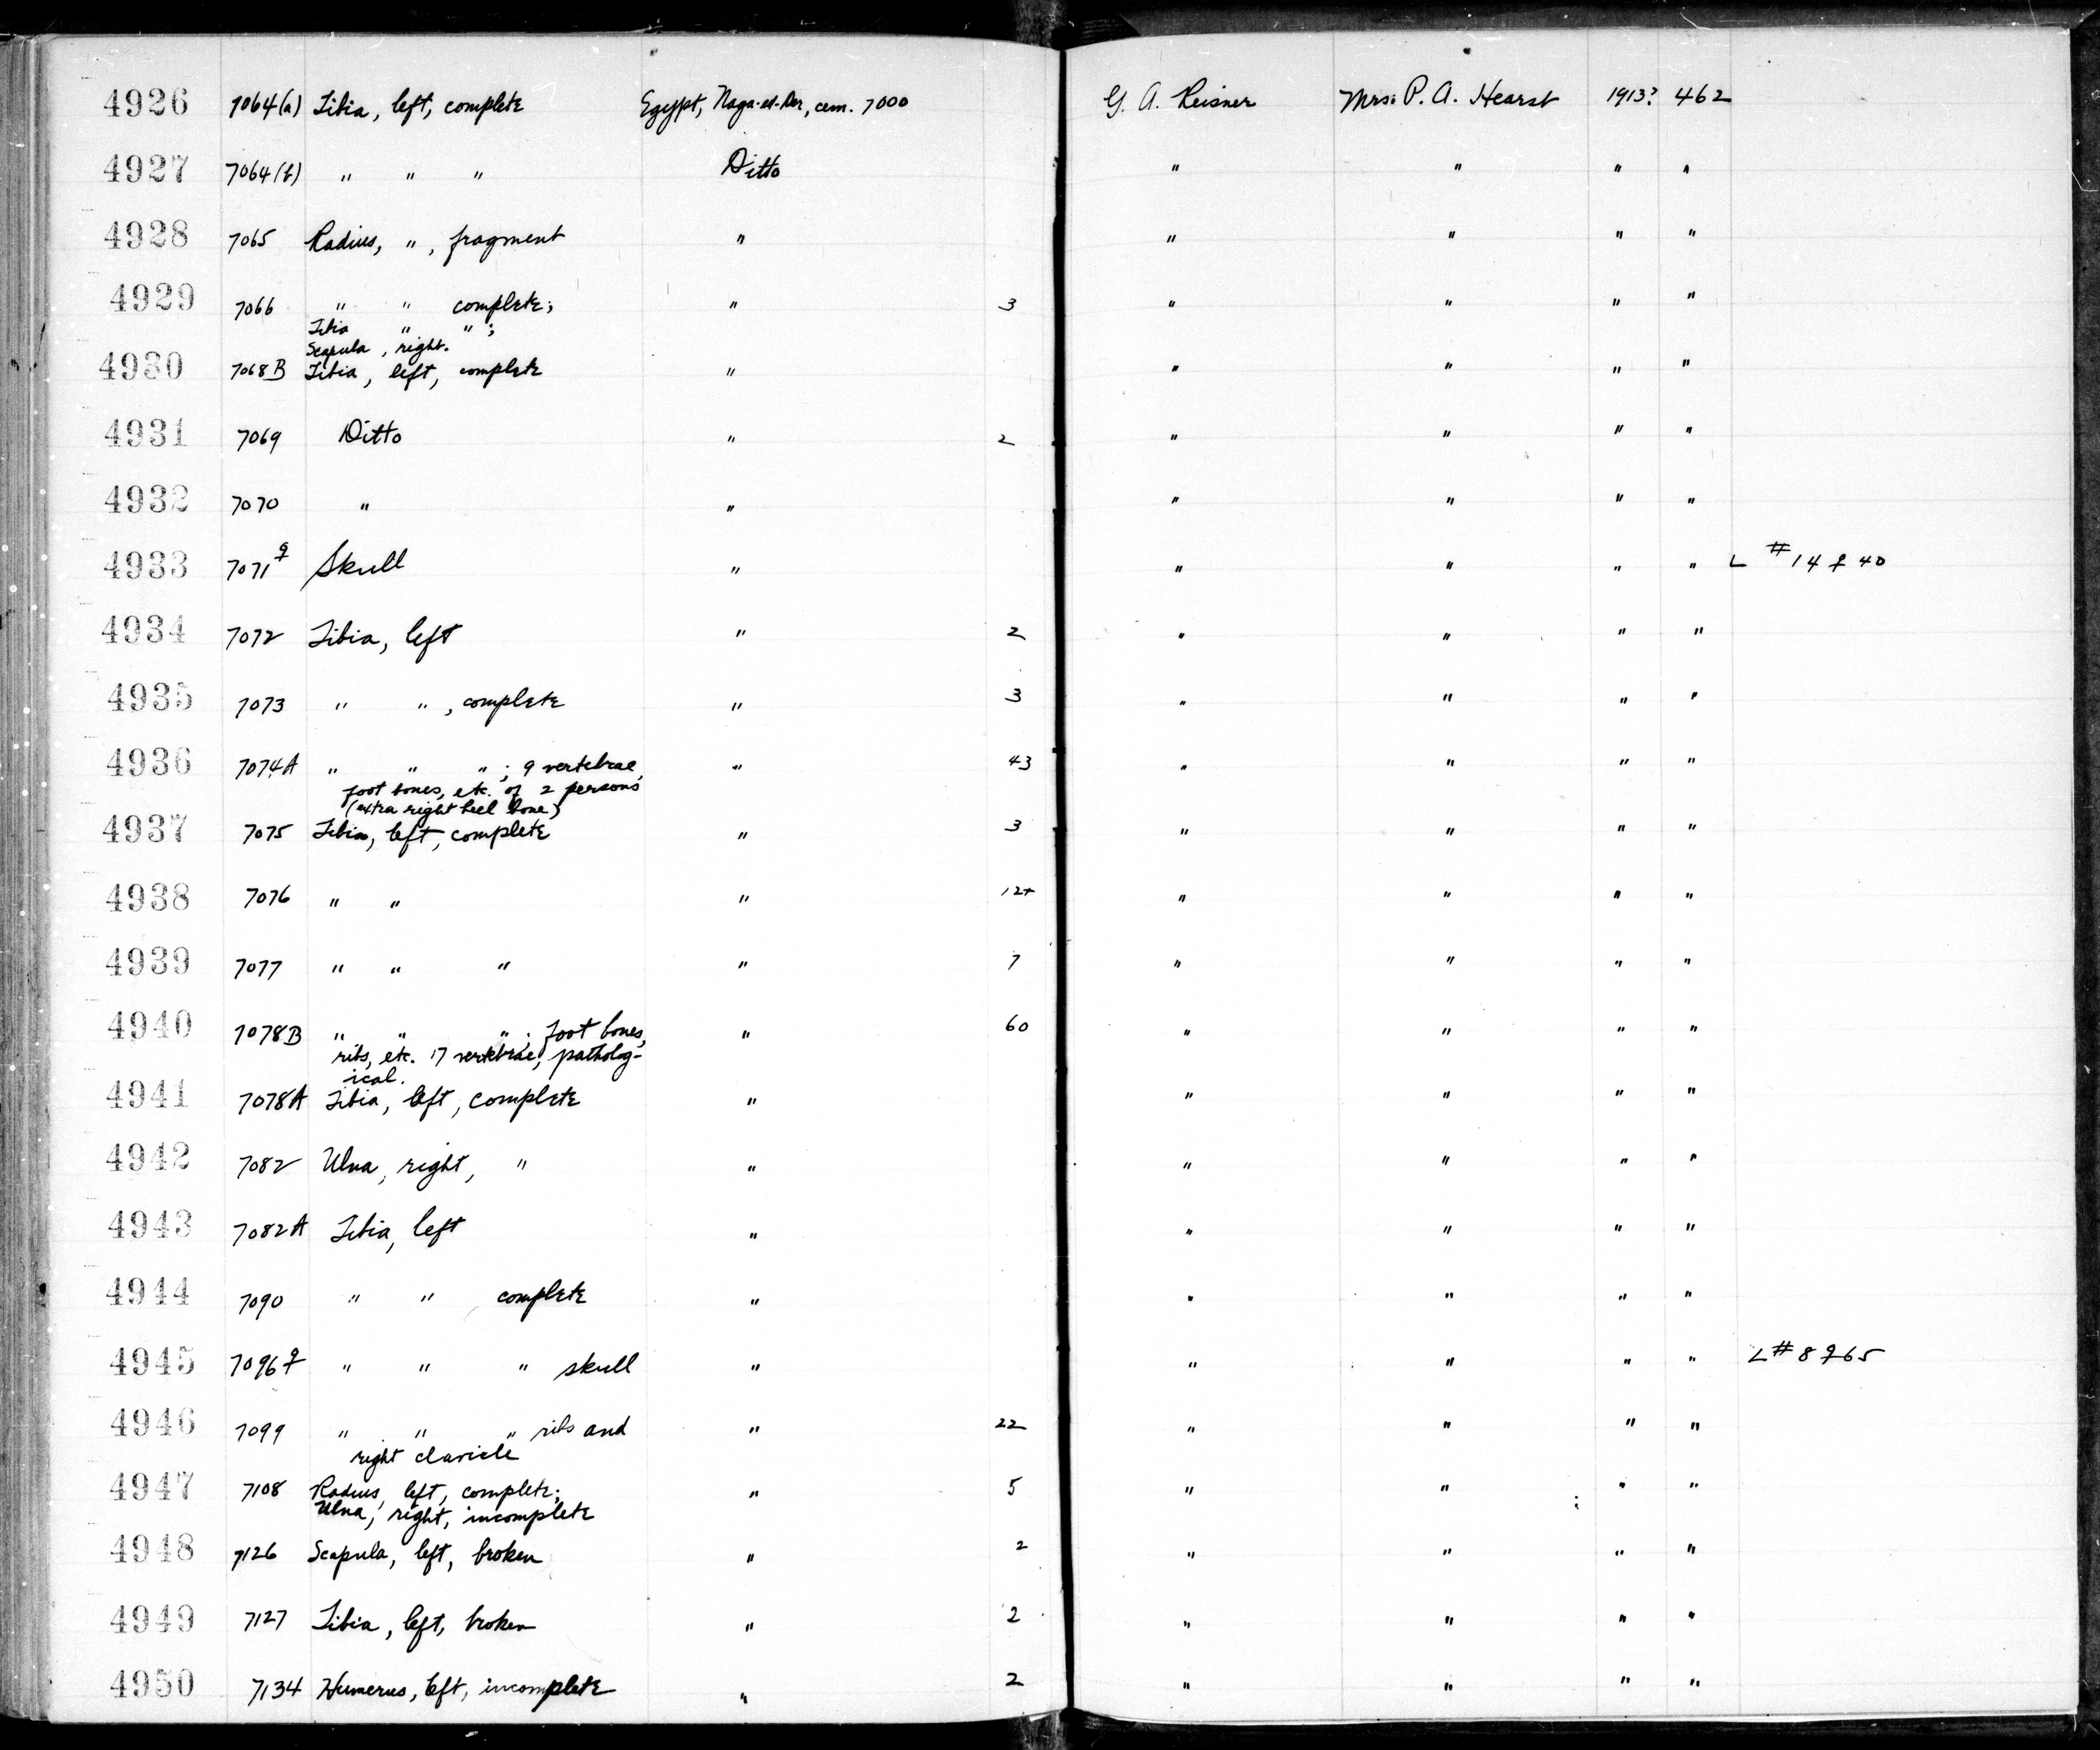 4926 7064(a) Tibia, left, complete Egypt, Naga-ed-Der, cem. 7000 G. A. Reisner Mrs. P. A. Hearst 1913? 462
4927 7064(b) " " " Ditto " " " "
4928 7065 Radius, " , fragment " " " " "
4929 7066 " " complete; " 3 " " " "
Tibia " " ;
Scapula, right.
4930 7068B Tibia, left, complete " " " " "
4931 7069 Ditto " 2 " " " "
4932 7070 " " " " " "
4933 7071 ♀ Skull " " " " " L #14 ♀ 40
4934 7072 Tibia, left " 2 " " " "
4935 7073 " " , complete " 3 " " " "
4936 7074A " " " ; 9 vertebrae, " 43 " " " "
foot bones, etc. of 2 persons
(extra right heel bone)
4937 7075 Tibia, left, complete " 3 " " " "
4938 7076 " " " 12+ " " " "
4939 7077 " " " " 7 " " " "
4940 7078B " " " ; foot bones, " 60 " " " "
ribs, etc. 17 vertebrae, patholog-
ical.
4941 7078A Tibia, left, complete " " " " "
4942 7082 Ulna, right, " " " " " "
4943 7082A Tibia, left " " " " "
4944 7090 " " complete " " " " "
4945 7096 ♀ " " " skull " " " " " L #8 ♀ 65
4946 7099 " " " ribs and " 22 " " " "
right clavicle
4947 7108 Radius, left, complete; " 5 " " " "
Ulna, right, incomplete
4948 7126 Scapula, left, broken " 2 " " " "
4949 7127 Tibia, left, broken " 2 " " " "
4950 7134 Humerus, left, incomplete " 2 " " " "